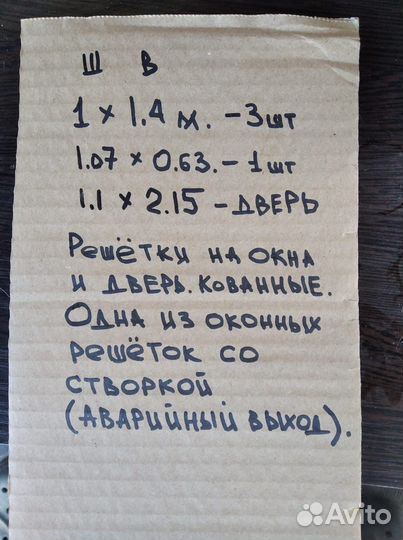 Ш В
1 × 1.4 м. - 3шт
1.07 × 0.63. - 1шт
1.1 × 2.15 - ДВЕРЬ
Решётки на окна
и дверь. Кованные.
Одна из оконных
решёток со
створкой
(аварийный выход).
Avito